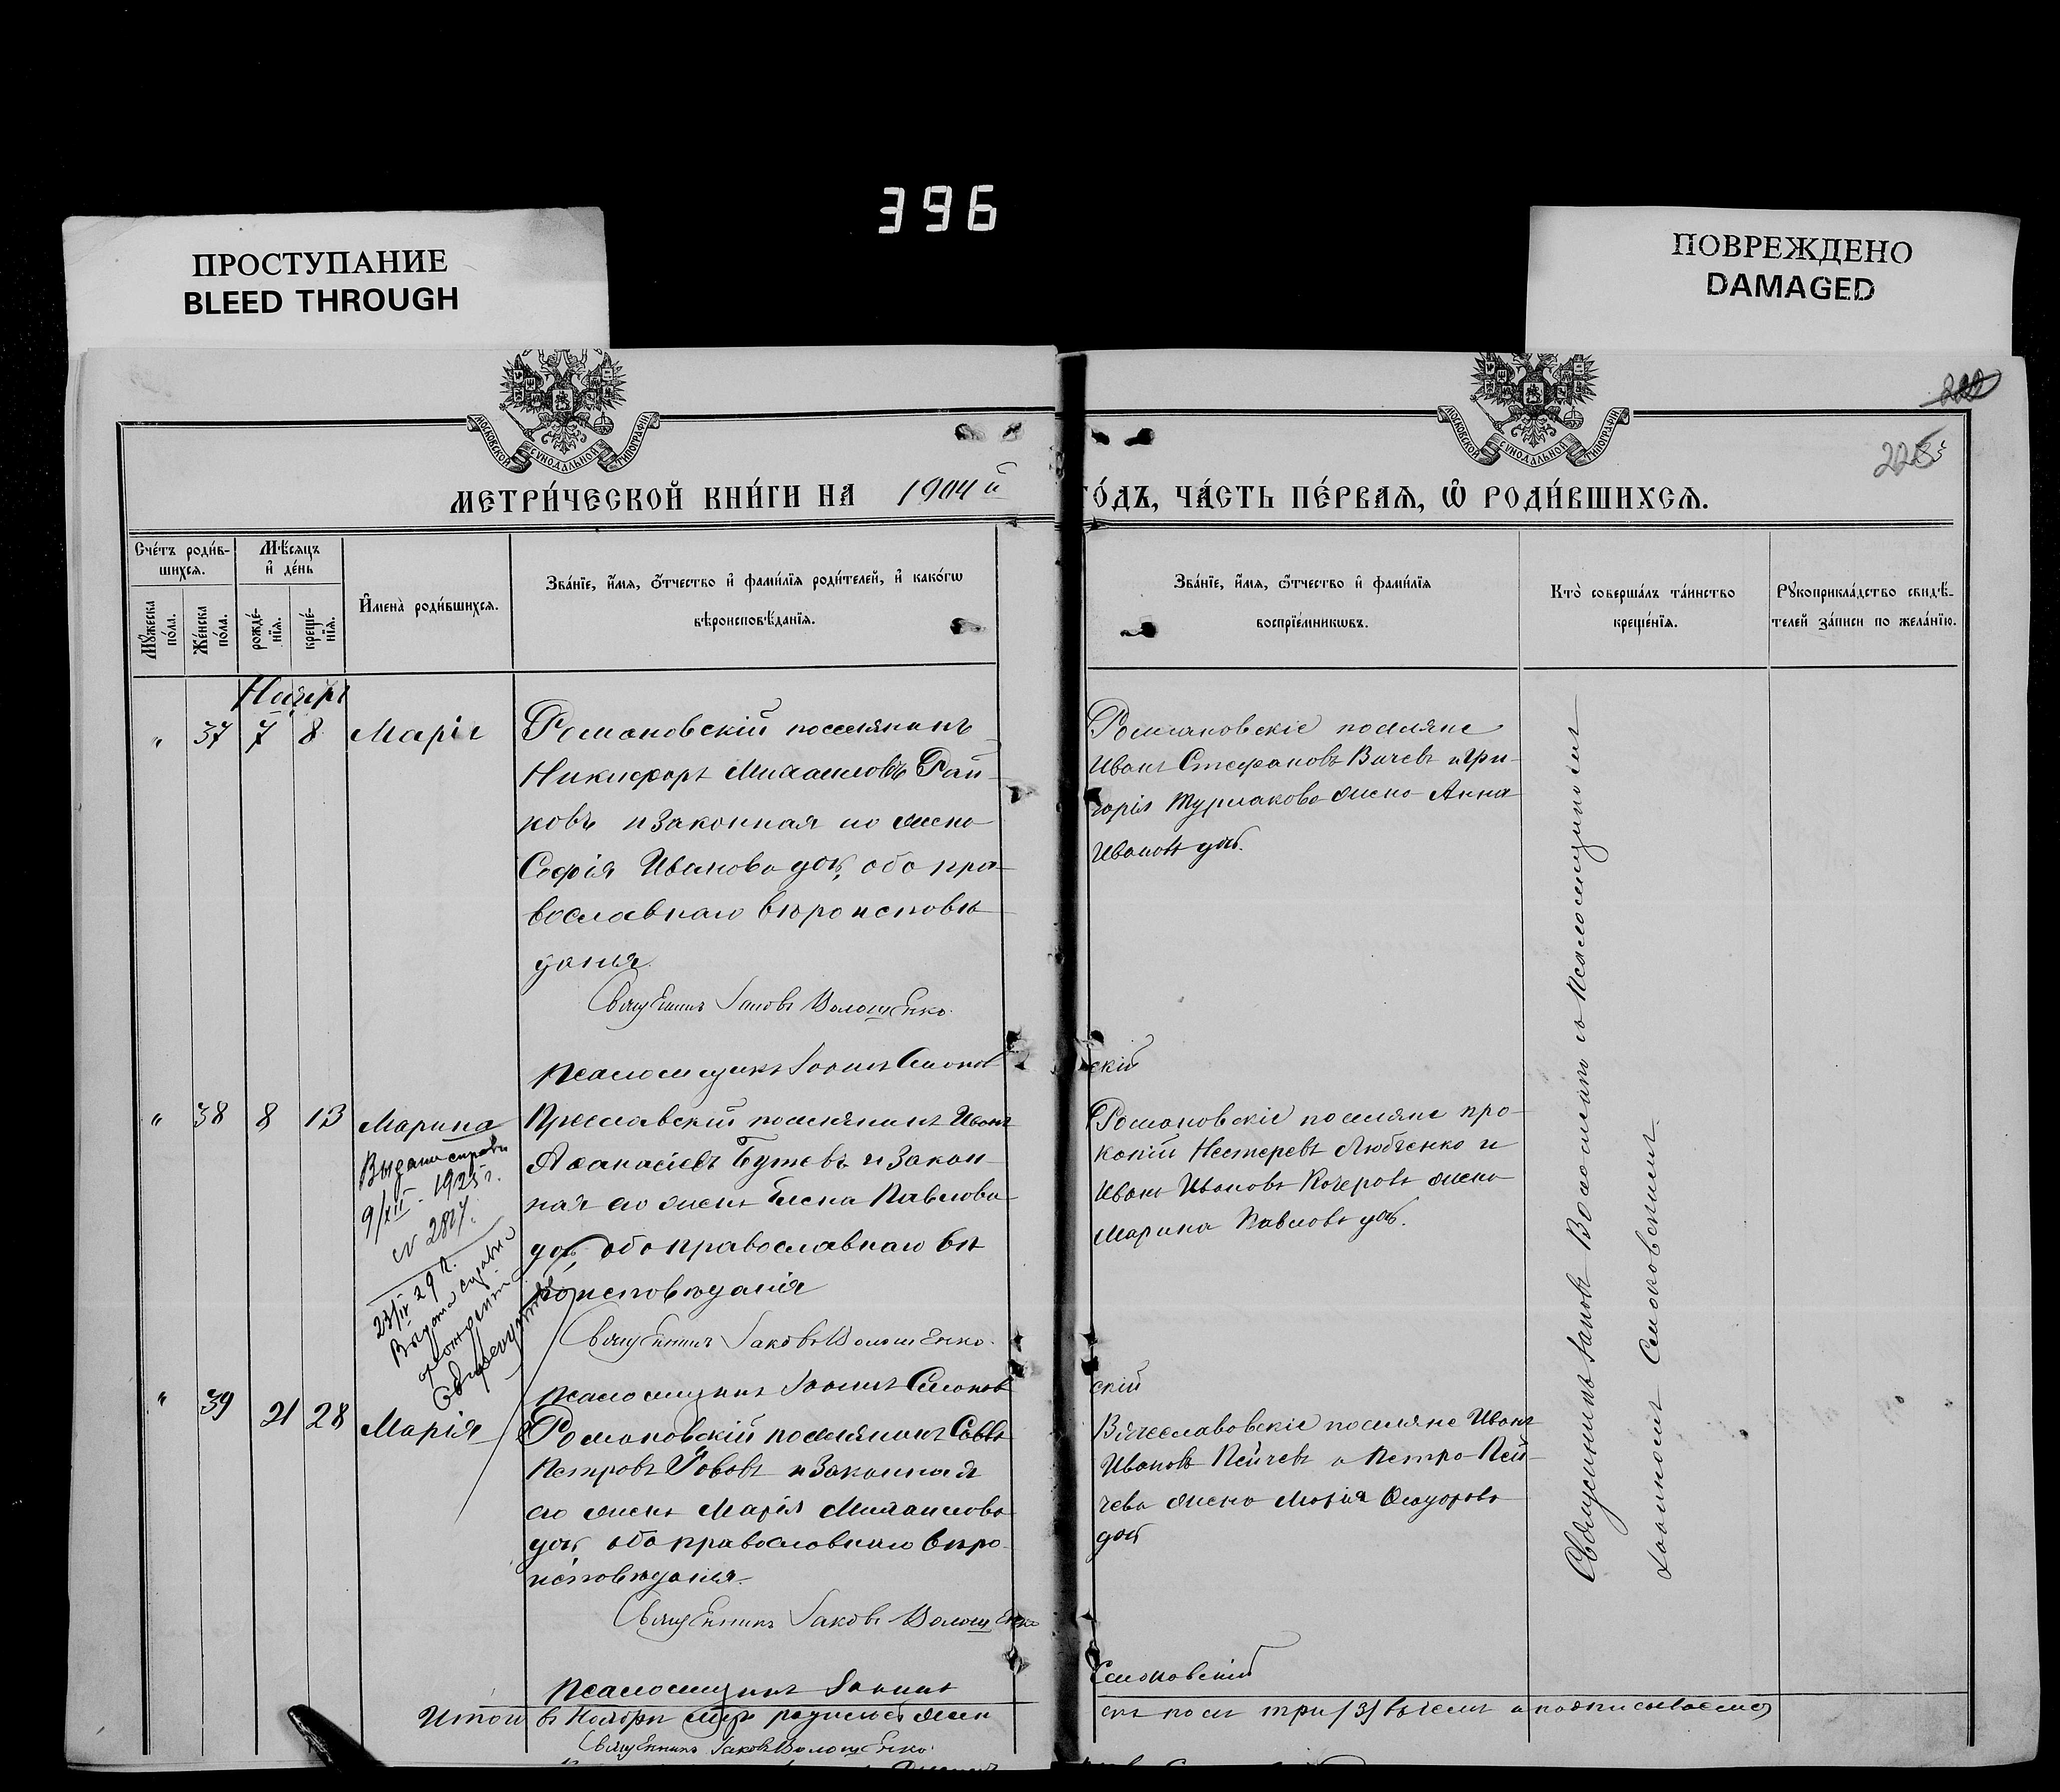 396
ПРОСТУПАНИЕ
BLEED THROUGH
ПОВРЕЖДЕНО
DAMAGED
МОСКОВСКОЙ СУНОДАЛЬНОЙ ТИПОГРАФІИ
МОСКОВСКОЙ СУНОДАЛЬНОЙ ТИПОГРАФІИ
МЕТРИ́ЧЕСКОЙ КНИ́ГИ НА 1904 й
ГО́ДЪ, ЧА́СТЬ ПЕ́РВАѦ, Ѡ РОДИ́ВШИХСѦ.
Сче́тъ роди́в-
шихсѧ.
Мꙋ́жеска по́ла.
Же́нска по́ла.
Мѣ́сѧцъ
и҆ де́нь
рожде́-
нїѧ.
креще́-
нїѧ.
И҆мена̀ роди́вшихсѧ.
Зва́нїе, и҆́мѧ, ѻ҆́тчество и҆ фами́лїѧ роди́телей, и҆ како́гѡ
вѣроисповѣ́данїѧ.
Зва́нїе, и҆́мѧ, ѻ҆́тчество и҆ фами́лїѧ
воспрїе́мникѡвъ.
Кто̀ соверша́лъ та́инство
креще́нїѧ.
Рꙋкоприкла́дство свидѣ́-
телей за́писи по жела́нїю.
" 37 7 8 Марія
Романовскій поселянинъ
Никифоръ Михаиловъ Рай-
ковъ и законная его жена
Софія Иванова дочь, оба пра-
вославнаго вѣроисповѣ
данія
Священникъ Іаковъ Волошенко.
Псаломщикъ Іоаннъ Симонов
скій
Романовскіе поселяне
Иванъ Стефановъ Вичевъ и Гри-
горія Турлакова жена Анна
Иванова дочь.
" 38 8 13 Марина
Выдана справка
9/XII 1925 г.
N 2817.
23/IV 29 г.
Выдана справка
о рождении
Преславскій поселянинъ Иванъ
Аѳанасіевъ Бужевъ и закон-
ная его жена Елена Павлова
дочь, оба православнаго вѣ
роисповѣданія
Священникъ Іаковъ Волошенко.
Псаломщикъ Іоаннъ Симонов
скій
Романовскіе поселяне Про-
копій Нестеревъ Любченко и
Ивана Иванова Кочерова жена
Марина Павлова дочь.
" 39 21 28 Марія
Романовскій поселянинъ Савва
Петровъ Іововъ и законная
его жена Марія Михаилова
дочь, оба православнаго вѣро-
исповѣданія.
Священникъ Іаковъ Волошенко
Псаломщикъ Іоаннъ
Симоновскій
Вячеславовскіе поселяне Иванъ
Ивановъ Пейчевъ и Петра Пей-
чева жена Марія Ѳеодорова
дочь
Священникъ Іаковъ Волошенко съ псаломщикомъ
Іоанномъ Симоновскимъ.
Итого въ Ноябрѣ мѣс. родилось жен
ска пола три /3/ въ чемъ и подписываемся
Священникъ Іаковъ Волошенко.